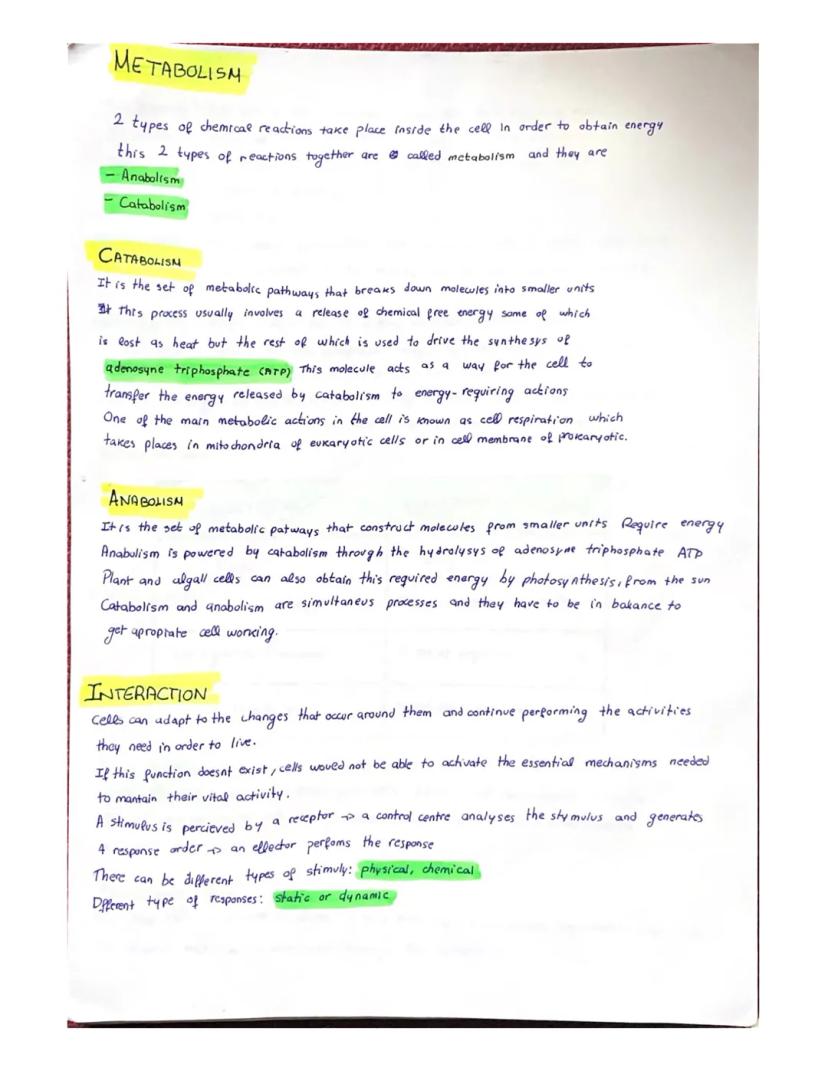 METABOLISM
2 types of chemical reactions take place inside the cell in order to obtain energy
this 2 types of reactions together are called metabolism and they are
- Anabolism
- Catabolism
CATABOLISM
It is the set of metabolic pathways that breaks down molecules into smaller units
This process usually involves a release of chemical free energy some of which
is lost as heat but the rest of which is used to drive the synthesys of
adenosyne triphosphate (ATP) This molecule acts as a way for the cell to
transfer the energy released by catabolism to energy-requiring actions
One of the main metabolic actions in the cell is known as cell respiration which
takes places in mitochondria of eukaryotic cells or in cell membrane of prokaryotic.
ANABOLISM
It is the set of metabolic patways that construct molecules from smaller units Require energy
Anabolism is powered by catabolism through the hydrolysys of adenosyne triphosphate ATP
Plant and algall cells can also obtain this required energy by photosynthesis, from the sun
Catabolism and anabolism are simultaneus processes and they have to be in bakance to
get apropriate cell working.
INTERACTION
Cells can adapt to the changes that occur around them and continue performing the activities
they need in order to live.
If this function doesnt exist, cells would not be able to achivate the essential mechanisms needed
to mantain their vital activity.
A stimulus is percieved by a receptor → a control centre analyses the stymulus and generates
A response order → an effector perfoms the response
There can be different types of stimuly: physical, chemical
Dfferent type of responses: static or dynamic